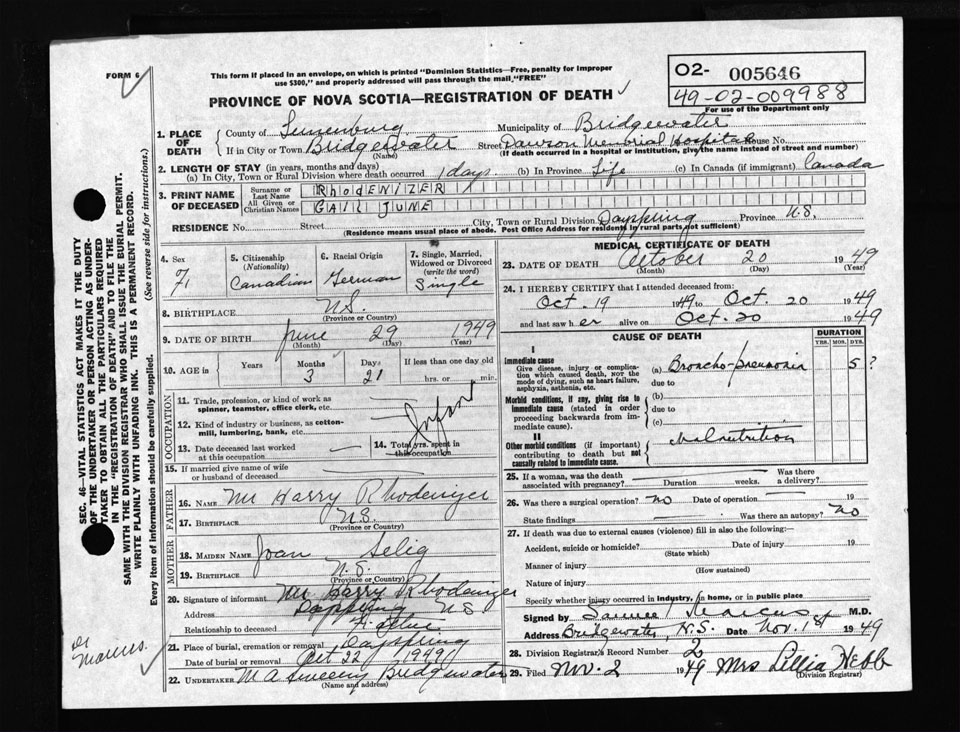 FORM 6
This form if placed in an envelope, on which is printed "Dominion Statistics—Free, penalty for improper
use $300," and properly addressed will pass through the mail, "FREE"
O2- 005646
49-02-009988
For use of the Department only
PROVINCE OF NOVA SCOTIA—REGISTRATION OF DEATH
1. PLACE OF DEATH
County of Lunenburg Municipality of Bridgewater
If in City or Town Bridgewater Street Dawson Memorial Hospital House No.
(Name) (If death occurred in a hospital or institution, give the name instead of street and number)
2. LENGTH OF STAY (in years, months and days)
(a) In City, Town or Rural Division where death occurred 1 days (b) In Province Life (c) In Canada (if immigrant) Canada
3. PRINT NAME OF DECEASED
Surname or Last Name RHODENIZER
All Given or Christian Names GAIL JUNE
RESIDENCE No. Street City, Town or Rural Division Dayspling Province N.S.
(Residence means usual place of abode. Post Office Address for residents in rural parts not sufficient)
4. Sex
F
5. Citizenship (Nationality)
Canadian
6. Racial Origin
German
7. Single, Married, Widowed or Divorced (write the word)
Single
8. BIRTHPLACE N.S.
(Province or Country)
9. DATE OF BIRTH June 29 1949
(Month) (Day) (Year)
10. AGE in Years Months Days If less than one day old
3 21 hrs. or min.
OCCUPATION
11. Trade, profession or kind of work as spinner, teamster, office clerk, etc.
Infant
12. Kind of industry or business, as cotton-mill, lumbering, bank, etc.
13. Date deceased last worked at this occupation
14. Total yrs. spent in this occupation
15. If married give name of wife or husband of deceased
FATHER
16. NAME Mr Harry Rhodenizer
17. BIRTHPLACE N.S.
(Province or Country)
MOTHER
18. MAIDEN NAME Joan Selig
19. BIRTHPLACE N.S.
(Province or Country)
20. Signature of informant Mr Harry Rhodenizer
Address Dayspling N.S
Relationship to deceased
21. Place of burial, cremation or removal Dayspling
Date of burial or removal Oct 22 1949
22. UNDERTAKER M A Sweeny Bridgewater
(Name and address)
MEDICAL CERTIFICATE OF DEATH
23. DATE OF DEATH October 20 1949
(Month) (Day) (Year)
24. I HEREBY CERTIFY that I attended deceased from:
Oct. 19 1949 to Oct. 20 1949
and last saw her alive on Oct. 20 1949
CAUSE OF DEATH
DURATION
YRS. MOS. DYS.
I
Immediate cause
Give disease, injury or complication which caused death, NOT the mode of dying, such as heart failure, asphyxia, asthenia, etc.
(a) Broncho-pneumonia 5 ?
due to
Morbid conditions, if any, giving rise to immediate cause (stated in order proceeding backwards from immediate cause).
(b)
due to
(c)
II
Other morbid conditions (if important) contributing to death but not causally related to immediate cause.
Malnutrition
25. If a woman, was the death associated with pregnancy? Duration weeks. Was there a delivery?
26. Was there a surgical operation? no Date of operation 19
State findings Was there an autopsy? No
27. If death was due to external causes (violence) fill in also the following:—
Accident, suicide or homicide? Date of injury 19
(State which)
Manner of injury
(How sustained)
Nature of injury
Specify whether injury occurred in industry, in home, or in public place
Signed by Samuel Marcus M.D.
Address Bridgewater, N.S. Date Nov. 1st 1949
28. Division Registrar's Record Number 2
29. Filed Nov. 2 1949 Mrs Lillia Hebb
(Division Registrar)
SEC. 46—VITAL STATISTICS ACT MAKES IT THE DUTY
OF THE UNDERTAKER OR PERSON ACTING AS UNDER-
TAKER TO OBTAIN ALL THE PARTICULARS REQUIRED
IN THE "REGISTRATION OF DEATH" AND TO FILE THE
SAME WITH THE DIVISION REGISTRAR WHO SHALL ISSUE THE BURIAL PERMIT.
WRITE PLAINLY WITH UNFADING INK. THIS IS A PERMANENT RECORD.
Every item of information should be carefully supplied. (See reverse side for instructions.)
Dr Marcus